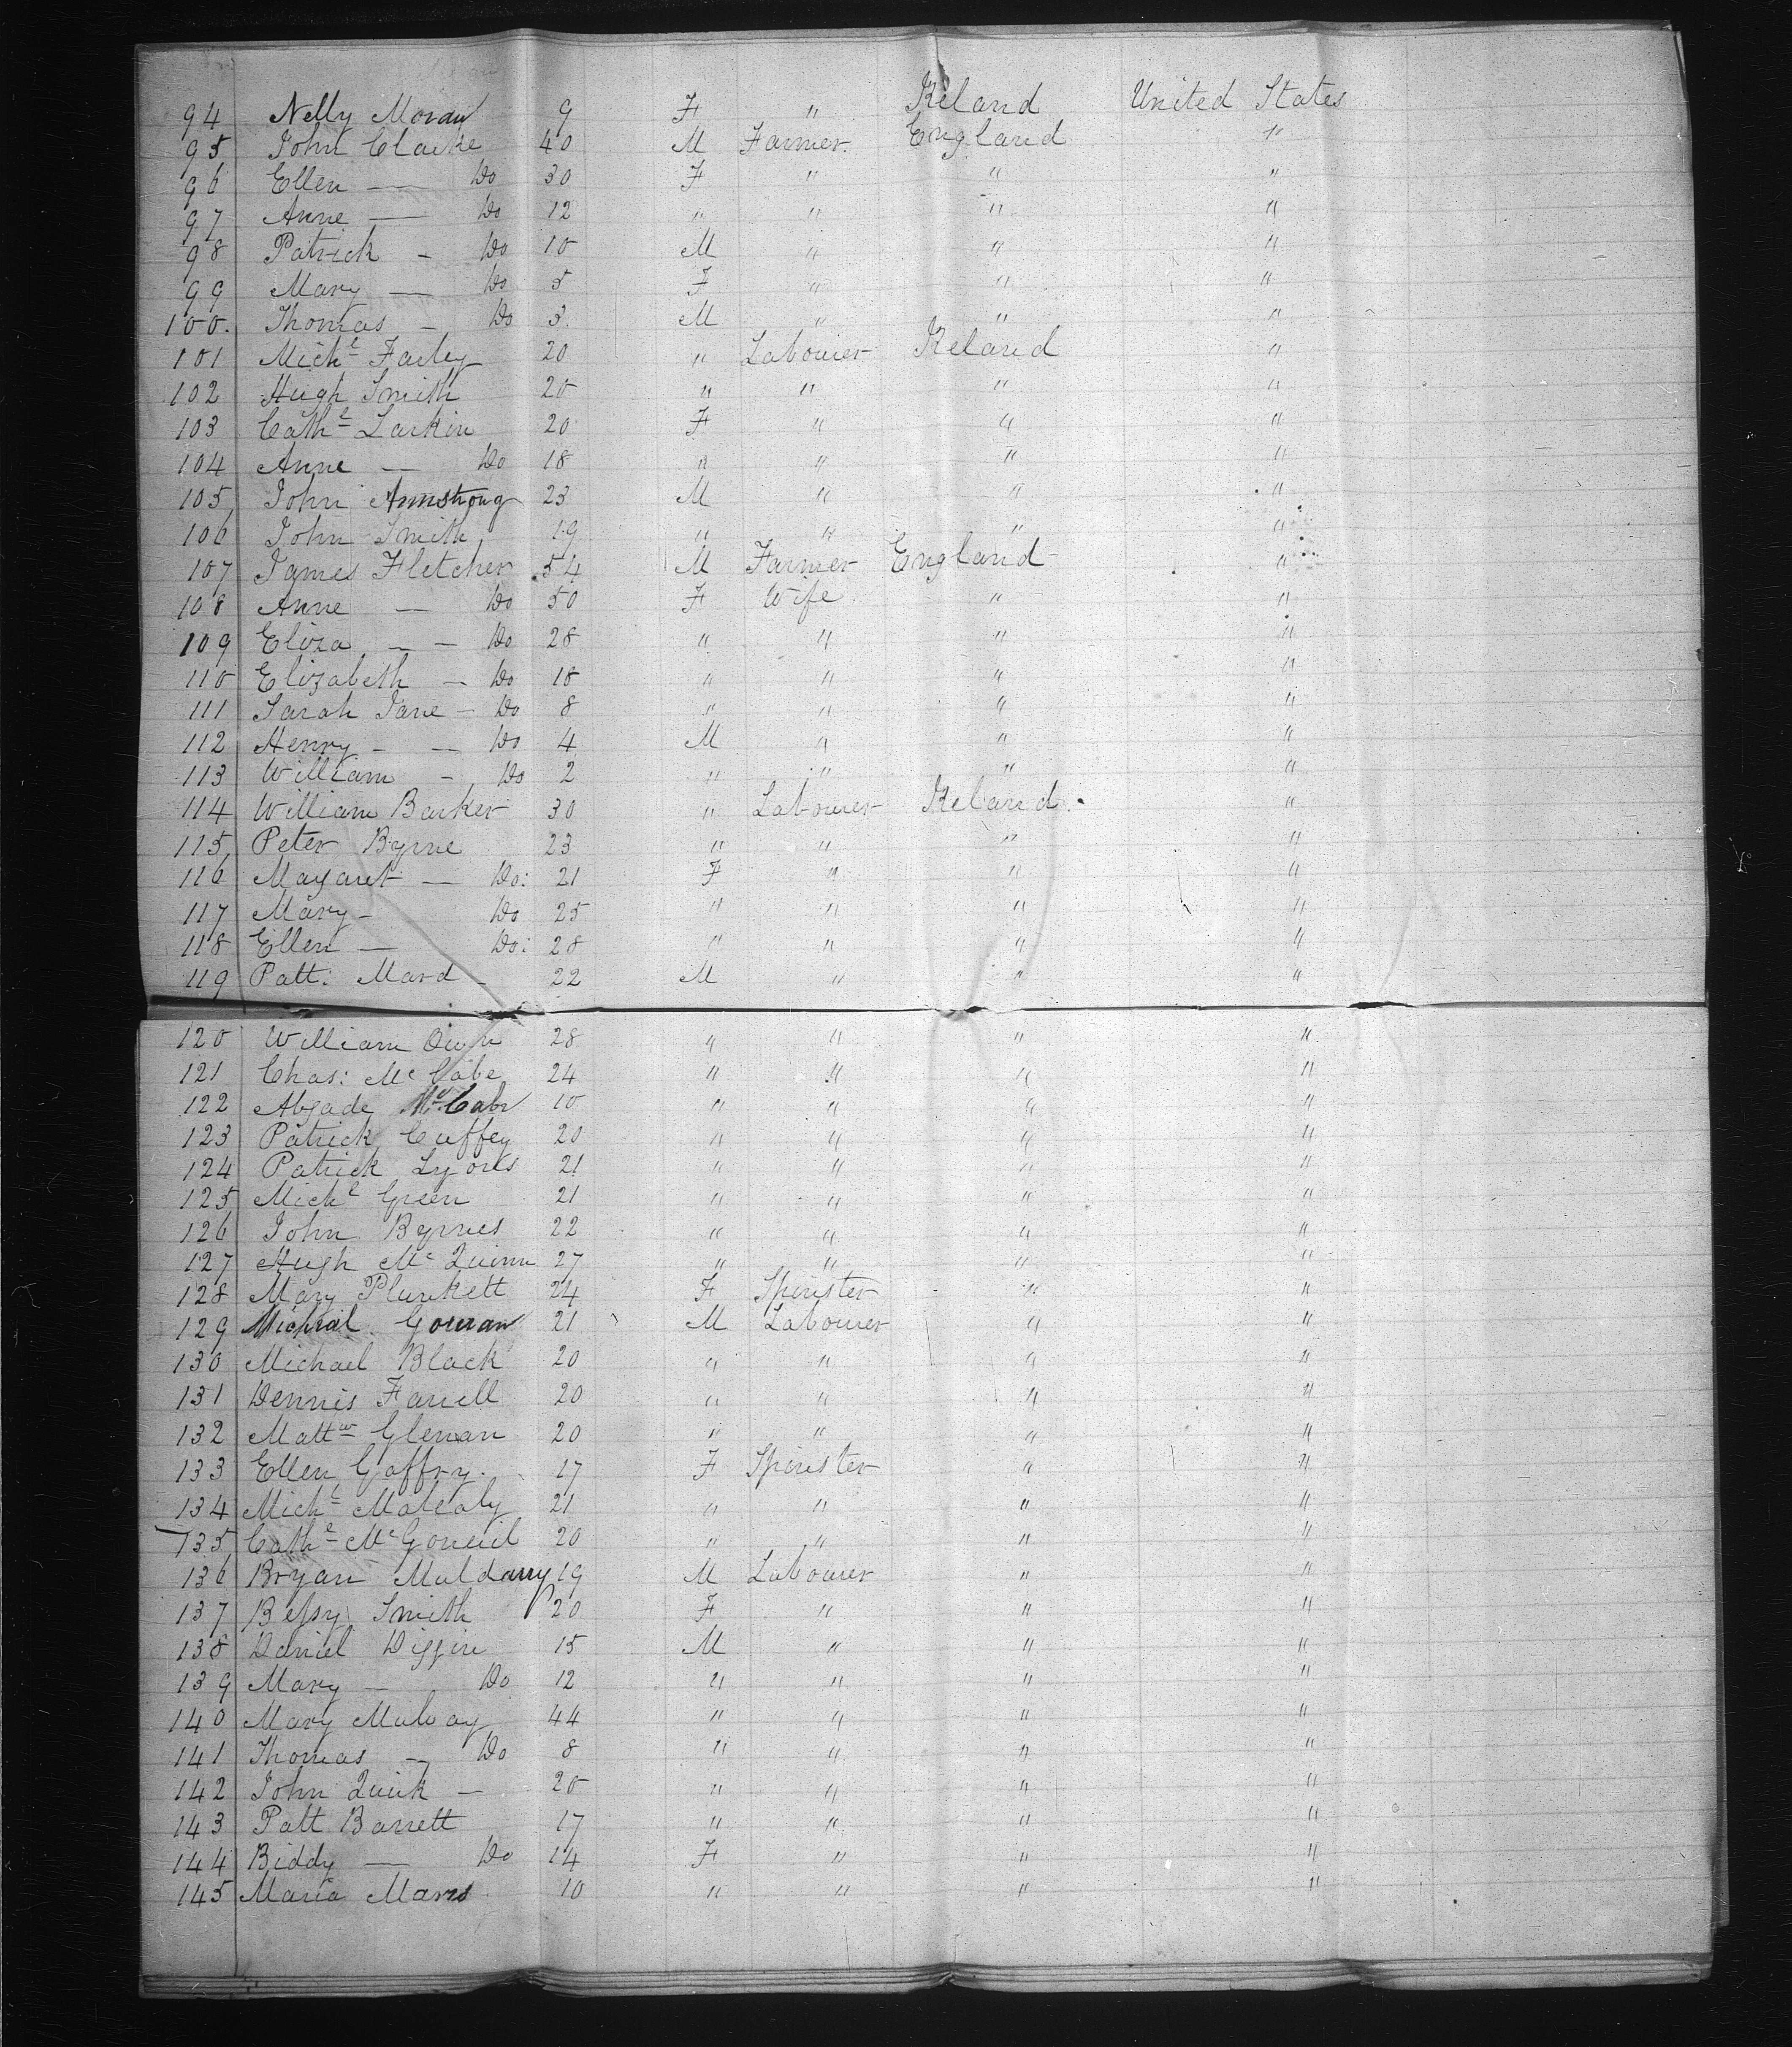 94 Nelly Moran 9 F " Ireland United States
95 John Clarke 40 M Farmer England "
96 Ellen — Do 30 F " " "
97 Anne — Do 12 " " " "
98 Patrick - Do 10 M " " "
99 Mary — Do 5 F " " "
100. Thomas - Do 3 M " " "
101 Michl Farley 20 " Labourer Ireland "
102 Hugh Smith 20 " " " "
103 Cathe Larkin 20 F " " "
104 Anne — Do 18 " " " "
105 John Armstrong 23 M " " "
106 John Smith 19 " " " "
107 James Fletcher 54 M Farmer England "
108 Anne — Do 50 F Wife " "
109 Eliza - - Do 28 " " " "
110 Elizabeth - Do 18 " " " "
111 Sarah Jane - Do 8 " " " "
112 Henry - — Do 4 M " " "
113 William - Do 2 " " " "
114 William Barker 30 " Labourer Ireland "
115 Peter Byrne 23 " " " "
116 Margaret — Do: 21 F " " "
117 Mary - Do 25 " " " "
118 Ellen — Do: 28 " " " "
119 Patt: Mard 22 M " " "
120 William 28 " " " "
121 Chas: Mc Cabe 24 " " " "
122 McCabe 10 " " " "
123 Patrick Cuffey 20 " " " "
124 Patrick Lyons 21 " " " "
125 Michl Green 21 " " " "
126 John Byrnes 22 " " " "
127 Hugh Mc Quinn 27 " " " "
128 Mary Plunkett 24 F Spinster " "
129 Michael Gowran 21 M Labourer " "
130 Michael Black 20 " " " "
131 Dennis Farrell 20 " " " "
132 Mattw Glenan 20 " " " "
133 Ellen Gaffry. 17 F Spinster " "
134 Michl 21 " " " "
135 Cathe 20 " " " "
136 Bryan Muldarry 19 M Labourer " "
137 Bessy Smith 20 F " " "
138 Daniel Diggin 15 M " " "
139 Mary — Do 12 " " " "
140 Mary Mulvay 44 " " " "
141 Thomas - Do 8 " " " "
142 John Quirk — 20 " " " "
143 Patt Barrett 17 " " " "
144 Biddy — Do 14 F " " "
145 Maria Mares 10 " " " "